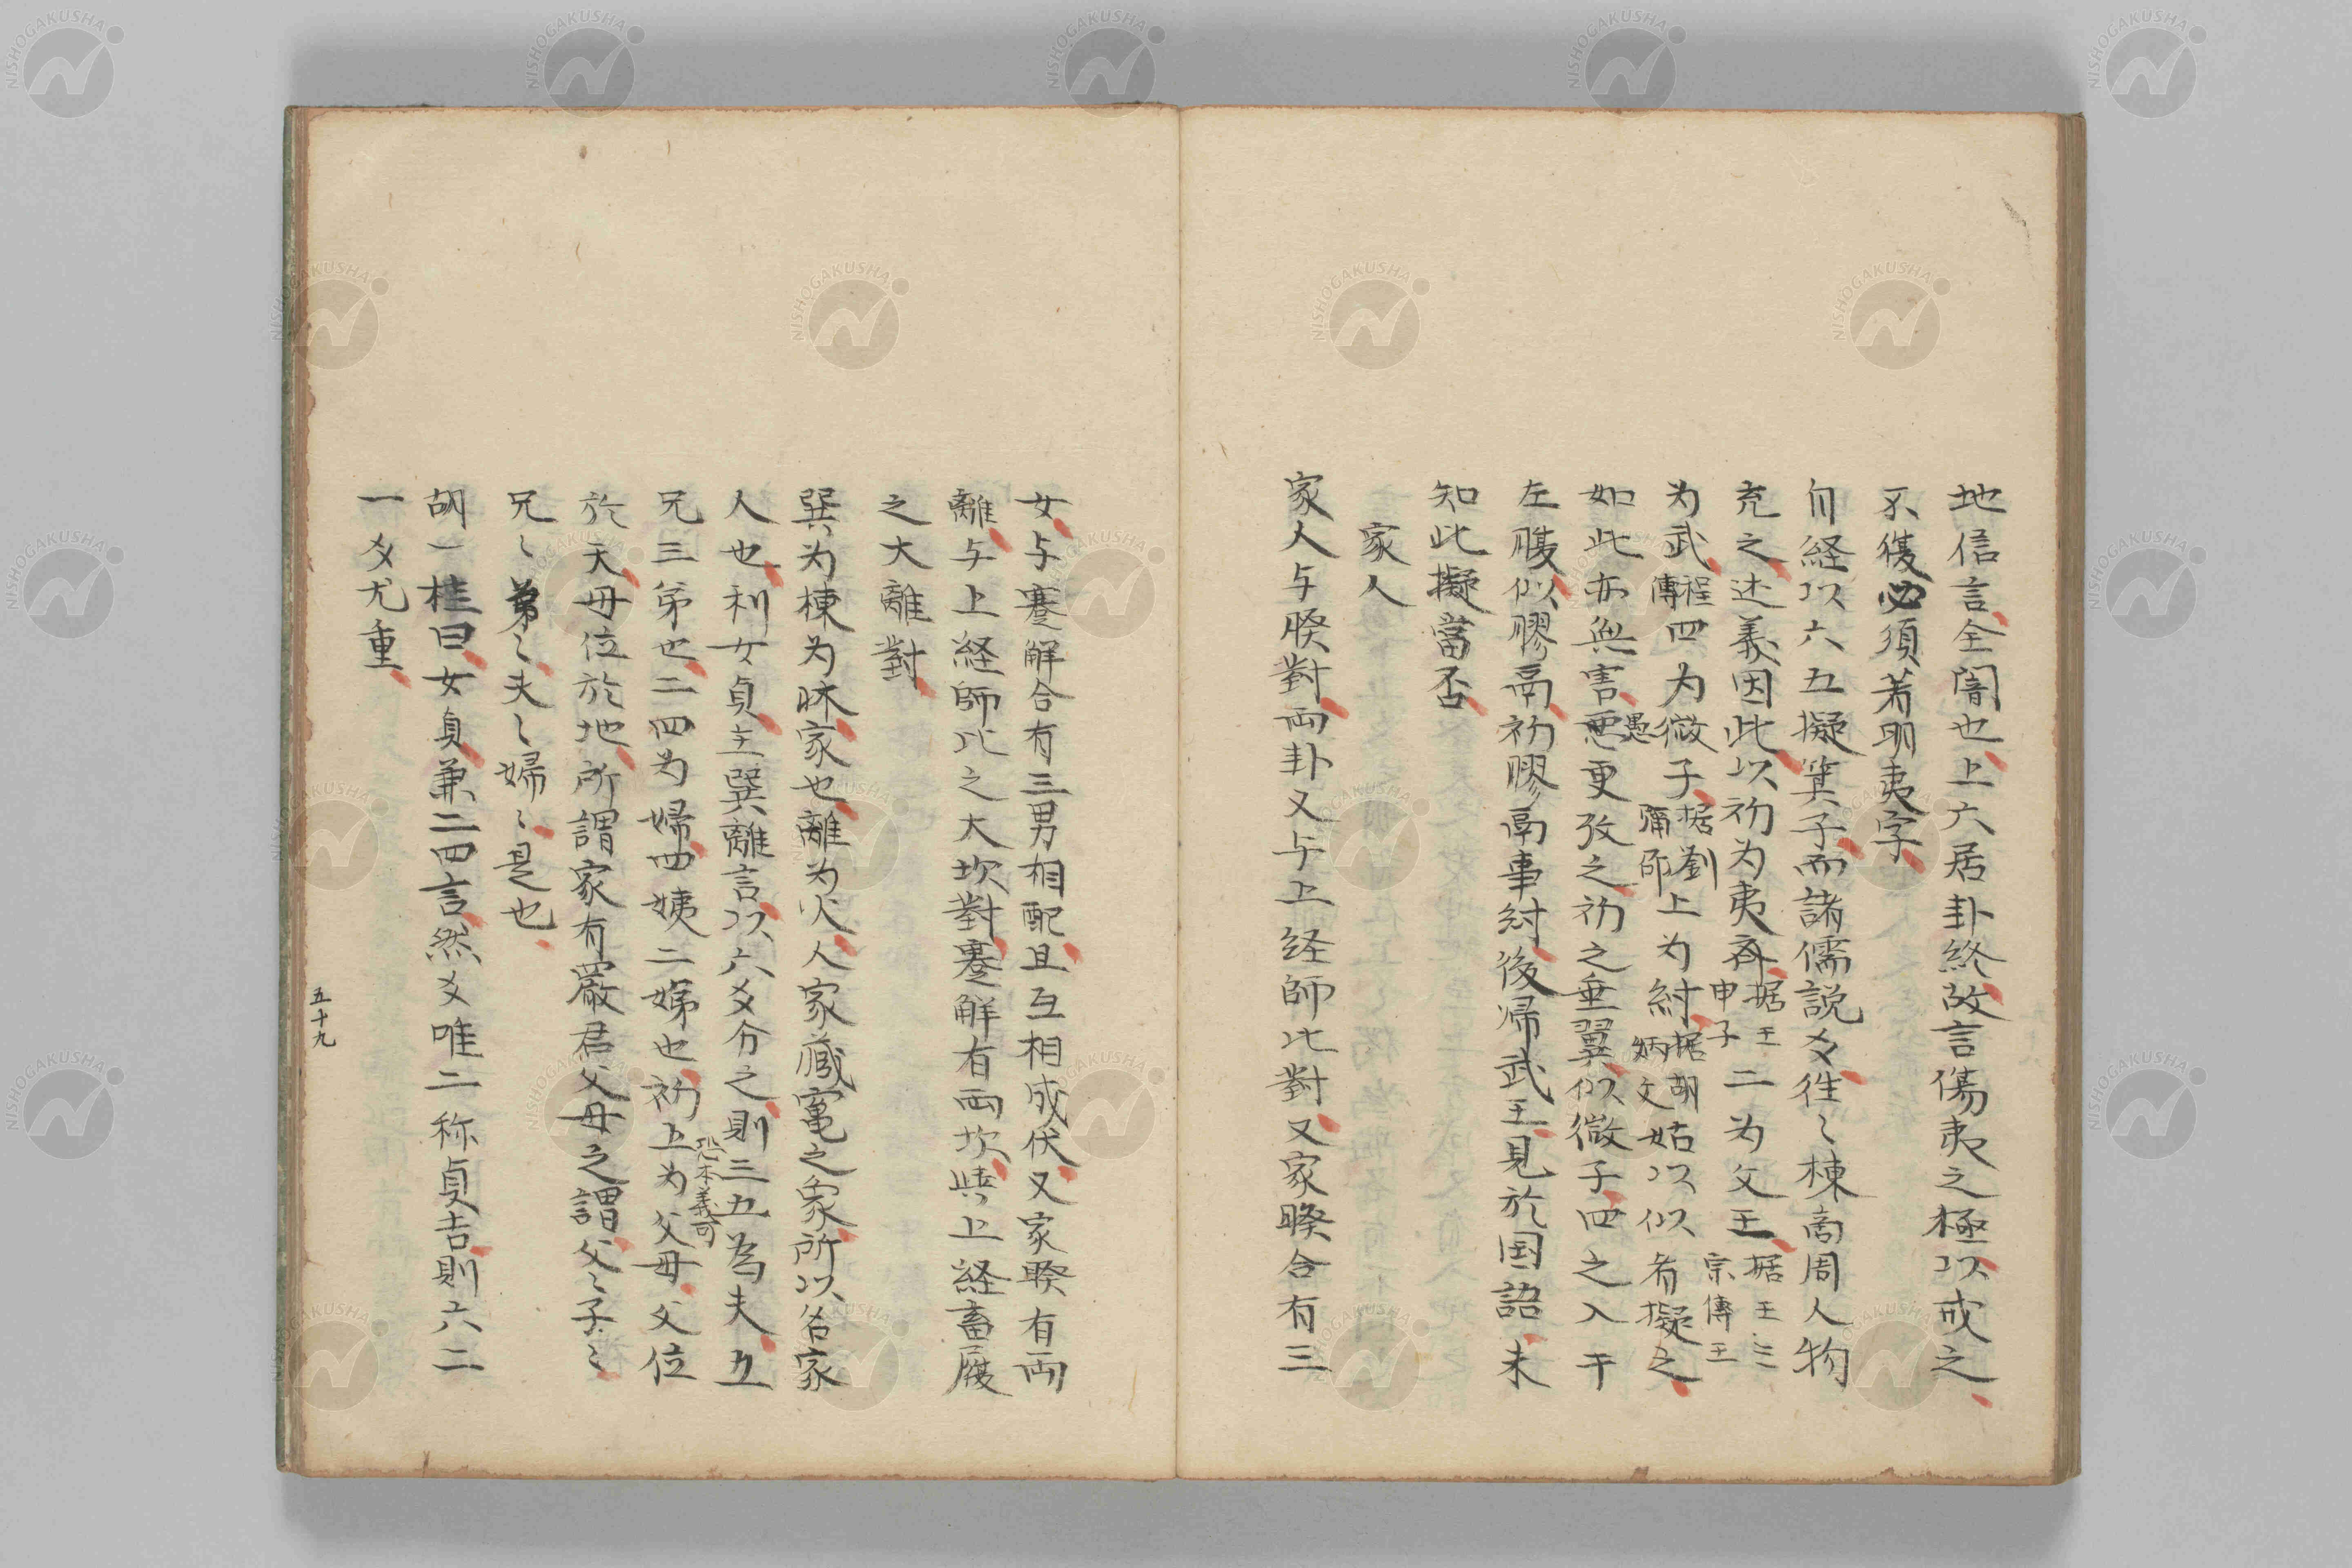 地信言全闇也上六居卦終故言傷夷之極以戒之
不復必須着明夷字
自経以六五擬箕子而諸儒説爻徃〻棟商周人物
充之述義因此以初为夷斉据王申子二为文王据王三宗傳王
为武程傳四为微子据劉彌邵上为紂据胡炳文姑以似者擬之
如此亦無害愚更攷之初之垂翼似微子四之入干
左腹似膠鬲初膠鬲事紂後帰武王見於国語未
知此擬當否
家人
家人与睽對両卦又与上経師比對又家睽合有三
女与蹇解合有三男相配且互相成伏又家睽有両
離与上経師比之大坎對蹇解有両坎與上経畜履
之大離對
巽为棟为牀家也離为火人家藏竃之象所以名家
人也利女貞主巽離言以六爻分之則三五為夫五
兄三弟也二四为婦四姨二娣也初上为父母父位
恐本義可
於天母位於地所謂家有嚴君父母之謂父〻子〻
兄〻弟〻夫〻婦〻是也
胡一桂曰女貞兼二四言然爻唯二称貞吉則六二
一爻尤重
五十九
NISHOGAKUSHA